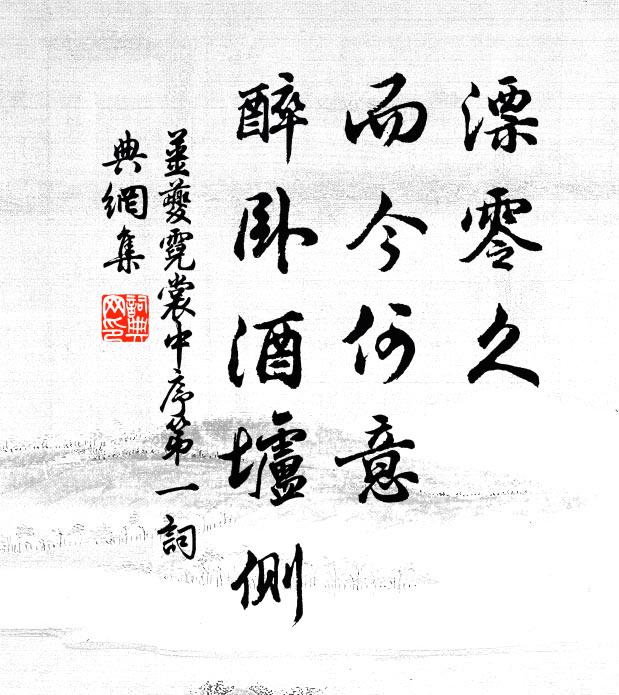 漂零久
而今何意
醉卧酒壚側
姜夔霓裳中序第一詞
典網集
詞典網印